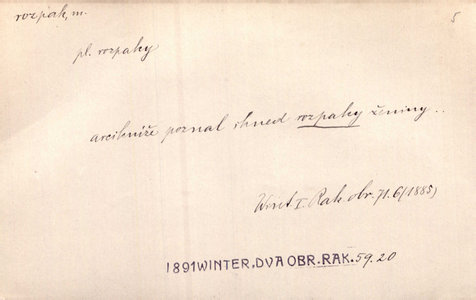 rozpak, m.
5
pl. rozpaky
arcikníže poznal ihned rozpaky ženiny..
Wint. I. Rak. obr. 71. 6 (1885)
1891 WINTER, DVA OBR. RAK. 59. 20